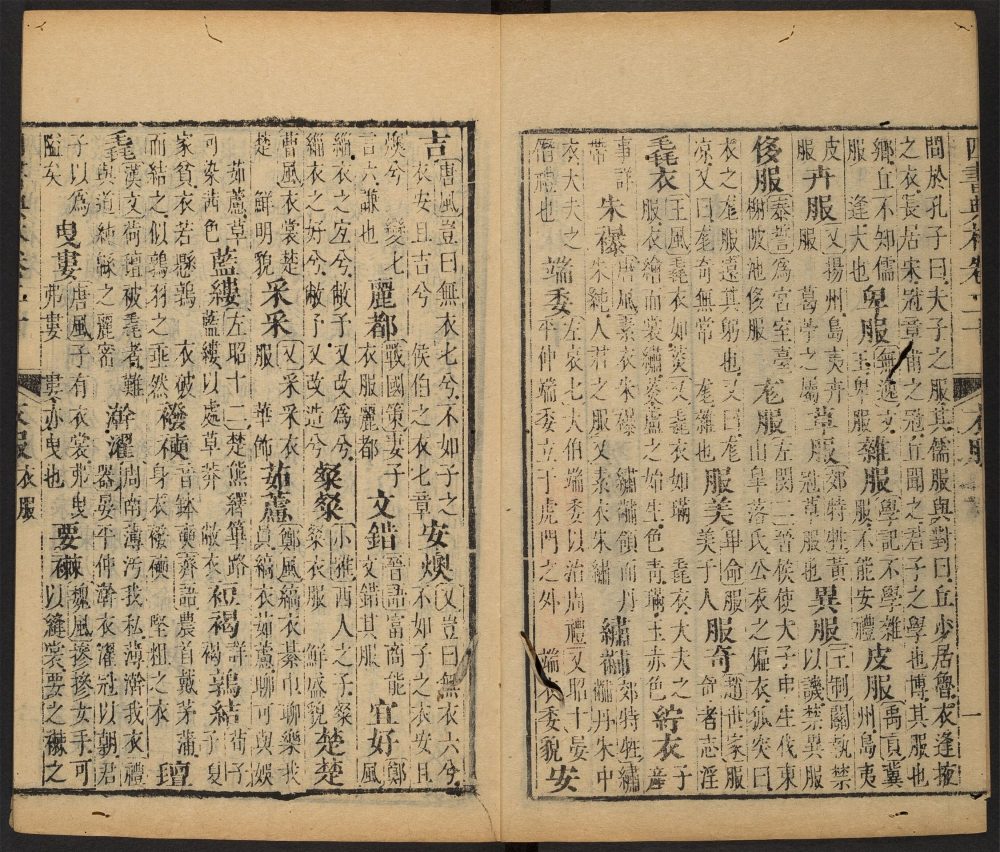 四書典林卷二十
衣服
一
問於孔子曰夫子之服其儒服與對曰丘少居魯衣逢掖之衣長居宋冠章甫之冠丘聞之君子之學也博其服也
鄉丘不知儒服逢大也 卑服 無逸文王卑服 雜服 學記不學雜服不能安禮 皮服 禹貢冀州島夷
皮服又 卉服 揚州島夷卉服葛苧之屬 草服 郊特牲黃冠草服也 異服 王制關執禁以譏禁異服
侈服 秦誓為宮室臺榭陂池侈服 尨服 左閔二晉侯使大子申生伐東山皐落氏公衣之偏衣狐突曰
衣之尨服遠其躬也又曰尨涼又尨奇無常 服美 畢命服美于人 服奇 趙世家服奇者志淫
毳衣 王風毳衣如菼又毳衣如璊毳衣大夫之服衣繪而裳繡菼蘆之始生色靑璊玉赤色 紵衣 子產
事詳帶 朱襮 唐風素衣朱襮繡黼領而丹朱純人君之服又素衣朱繡 繡黼 郊特牲繡黼丹朱中
衣大夫之僭禮也 端委 左哀七大伯端委以治周禮又昭十晏平仲端委立于虎門之外端衣委貌 安
吉 唐風豈曰無衣七兮不如子之衣安且吉兮侯伯之衣七章 安燠 又豈曰無衣六兮不如子之衣安且
燠兮變七言六謙也 麗都 戰國策妻子衣服麗都 文錯 晉語富商能文錯其服 宜好 鄭風
緇衣之宜兮敝予又改為兮緇衣之好兮敝予又改造兮 粲粲 小雅西人之子粲粲衣服鮮盛貌 楚楚
曹風衣裳楚楚鮮明貌 采采 又采采衣服華飾 茹藘 鄭風縞衣綦巾聊樂我員縞衣茹藘聊可與娛
茹藘草可染茜色 藍縷 左昭十二楚熊繹篳路藍縷以處草莽敝衣 裋褐 詳褐 鶉結 荀子子夏
家貧衣若懸鶉衣破而結之似鶉羽之垂然 襏襫 音鉢奭齊語農首戴茅蒲身衣襏襫堅粗之衣 璮
毳 漢文荷璮被毳者難與道純緜之麗密 澣濯 周南薄汚我私薄澣我衣禮器晏平仲澣衣濯冠以朝君
子以為隘矣 曳婁 唐風子有衣裳弗曳弗婁婁亦曳也 要襋 魏風摻摻女手可以縫裳要之襋之
衣服 衣服